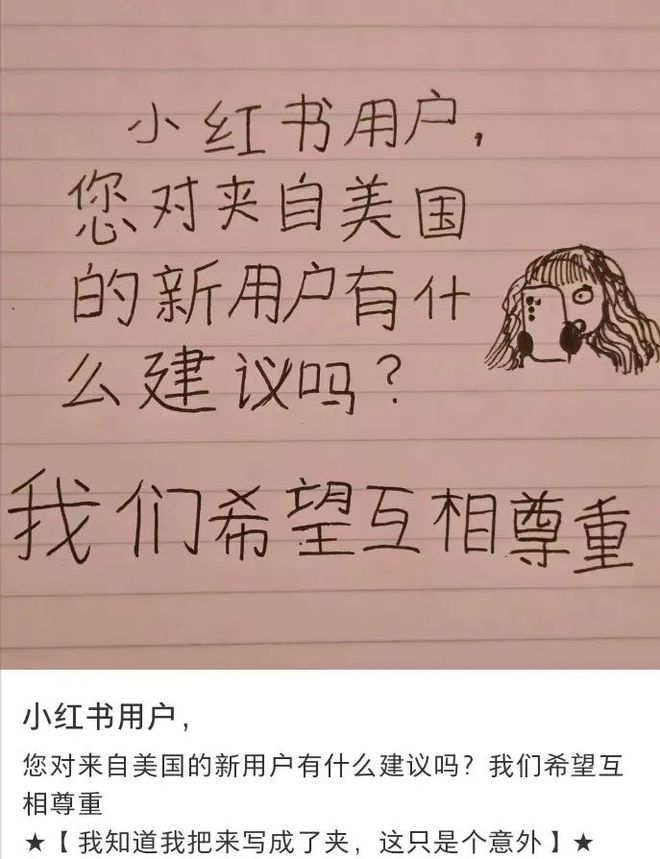 小红书用户，
您对夹自美国
的新用户有什
么建议吗？
我们希望互相尊重
小红书用户，
您对来自美国的新用户有什么建议吗？我们希望互
相尊重
★【我知道我把来写成了夹，这只是个意外】★